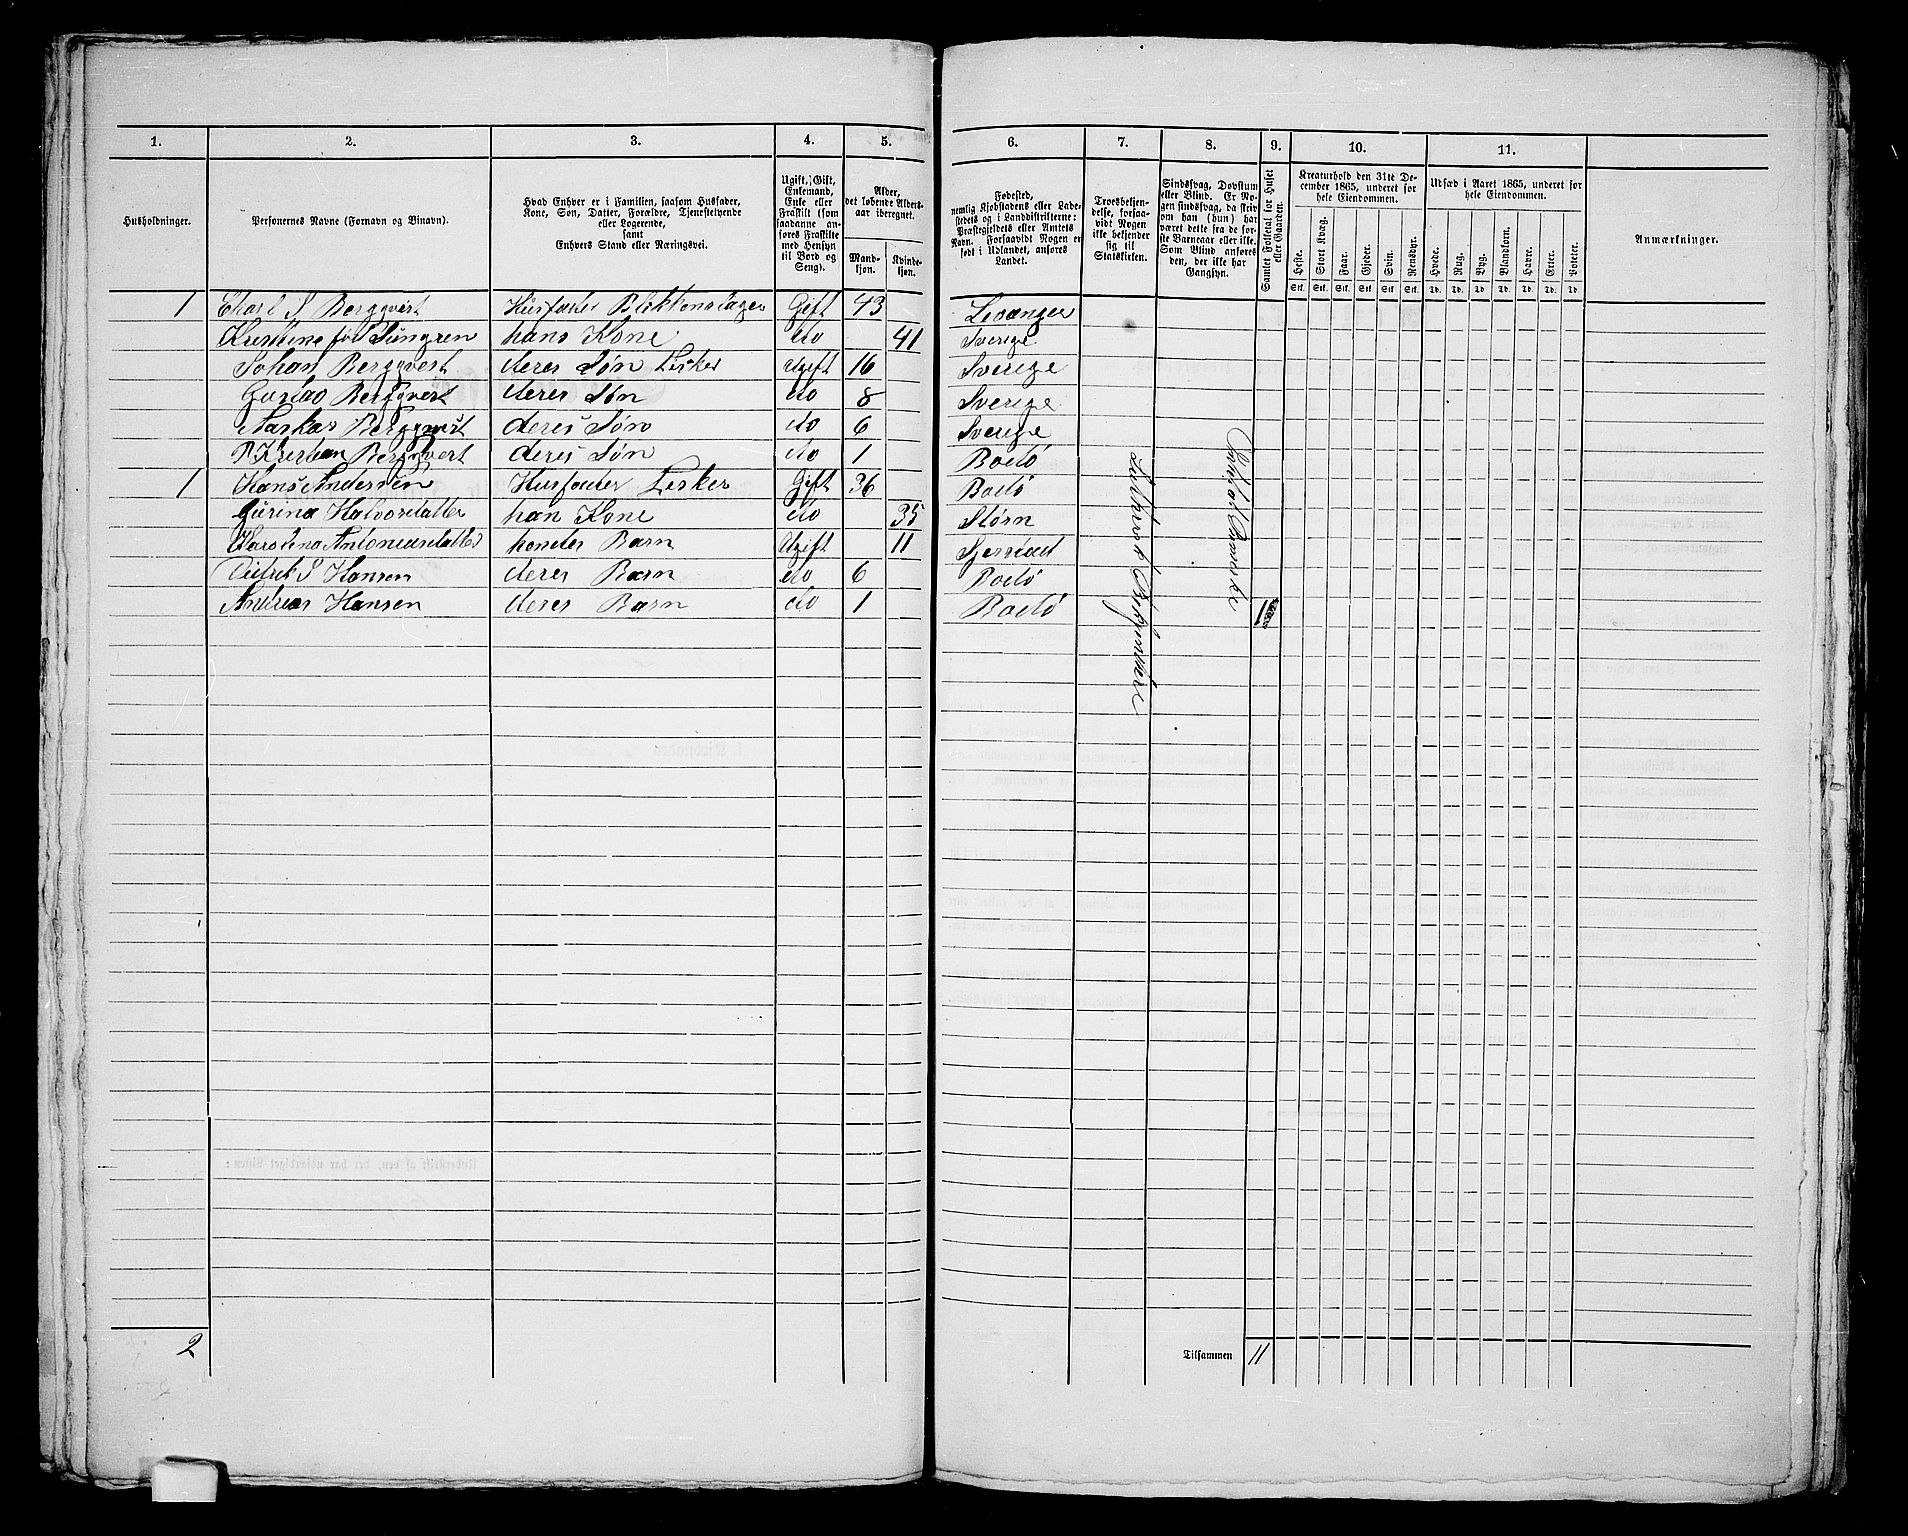 1. 2. 3. 4. 5. 6. 7. 8. 9. 10. 11.
Husholdninger.
Personernes Navne (Fornavn og Binavn).
Hvad Enhver er i Familien, saasom Husfader,
Kone, Søn, Datter, Forældre, Tjenestetyende
eller Logerende,
samt
Enhvers Stand eller Næringsvei.
Ugift, Gift,
Enkemand,
Enke eller
Fraskilt (som
saadanne an-
føres Fraskilte
med Hensyn
til Bord og
Seng).
Alder,
det løbende Alders-
aar iberegnet.
Mand-
kjøn.
Kvinde-
kjøn.
Fødested,
nemlig Kjøbstadens eller Lade-
stedets og i Landdistrikterne:
Præstegjeldets eller Amtets
Navn. Forsaavidt Nogen er
født i Udlandet, anføres
Landet.
Troesbekjen-
delse, forsaa-
vidt Nogen
ikke bekjender
sig til
Statskirken.
Sindssvag, Døvstum
eller Blind. Er No-
gen sindssvag, da skriv
om han (hun) har
været dette fra de før-
ste Barneaar eller ikke.
Som Blind ansøres
den, der ikke har
Gangsyn.
Samlet Folketal for Huset
eller Gaarden.
Kreaturhold den 31te De-
cember 1865, underet for
hele Eiendommen.
Heste. Stort Kvæg. Faar. Gjeder. Svin. Rensdyr.
Stk. Stk. Stk. Stk. Stk. Stk.
Udsæd i Aaret 1865, underet for
hele Eiendommen.
Hvede. Rug. Byg. Blandkorn. Havre. Erter. Poteter.
Td. Td. Td. Td. Td. Td. Td.
Anmærkninger.
1 Carl S Bergqvist Husfader Blikkenslager Gift 43 Levanger
Kristine hans Kone do 41 Sverige
Johan Bergqvest deres Søn Ugift 16 Sverige
Gustav Bergqvest deres Søn do 8 Sverige
Bergqvist deres Søn do 6 Sverige
Bergqvest deres Søn do 1 Bodø
1 Hans Andersen Husfader Gift 36 Bodø
han Kone do 35
Barn Ugeft 11
Hansen deres Barn do 6 Bodø
Andreas Hansen deres Barn do 1 Bodø 11
2 Tilsammen 11